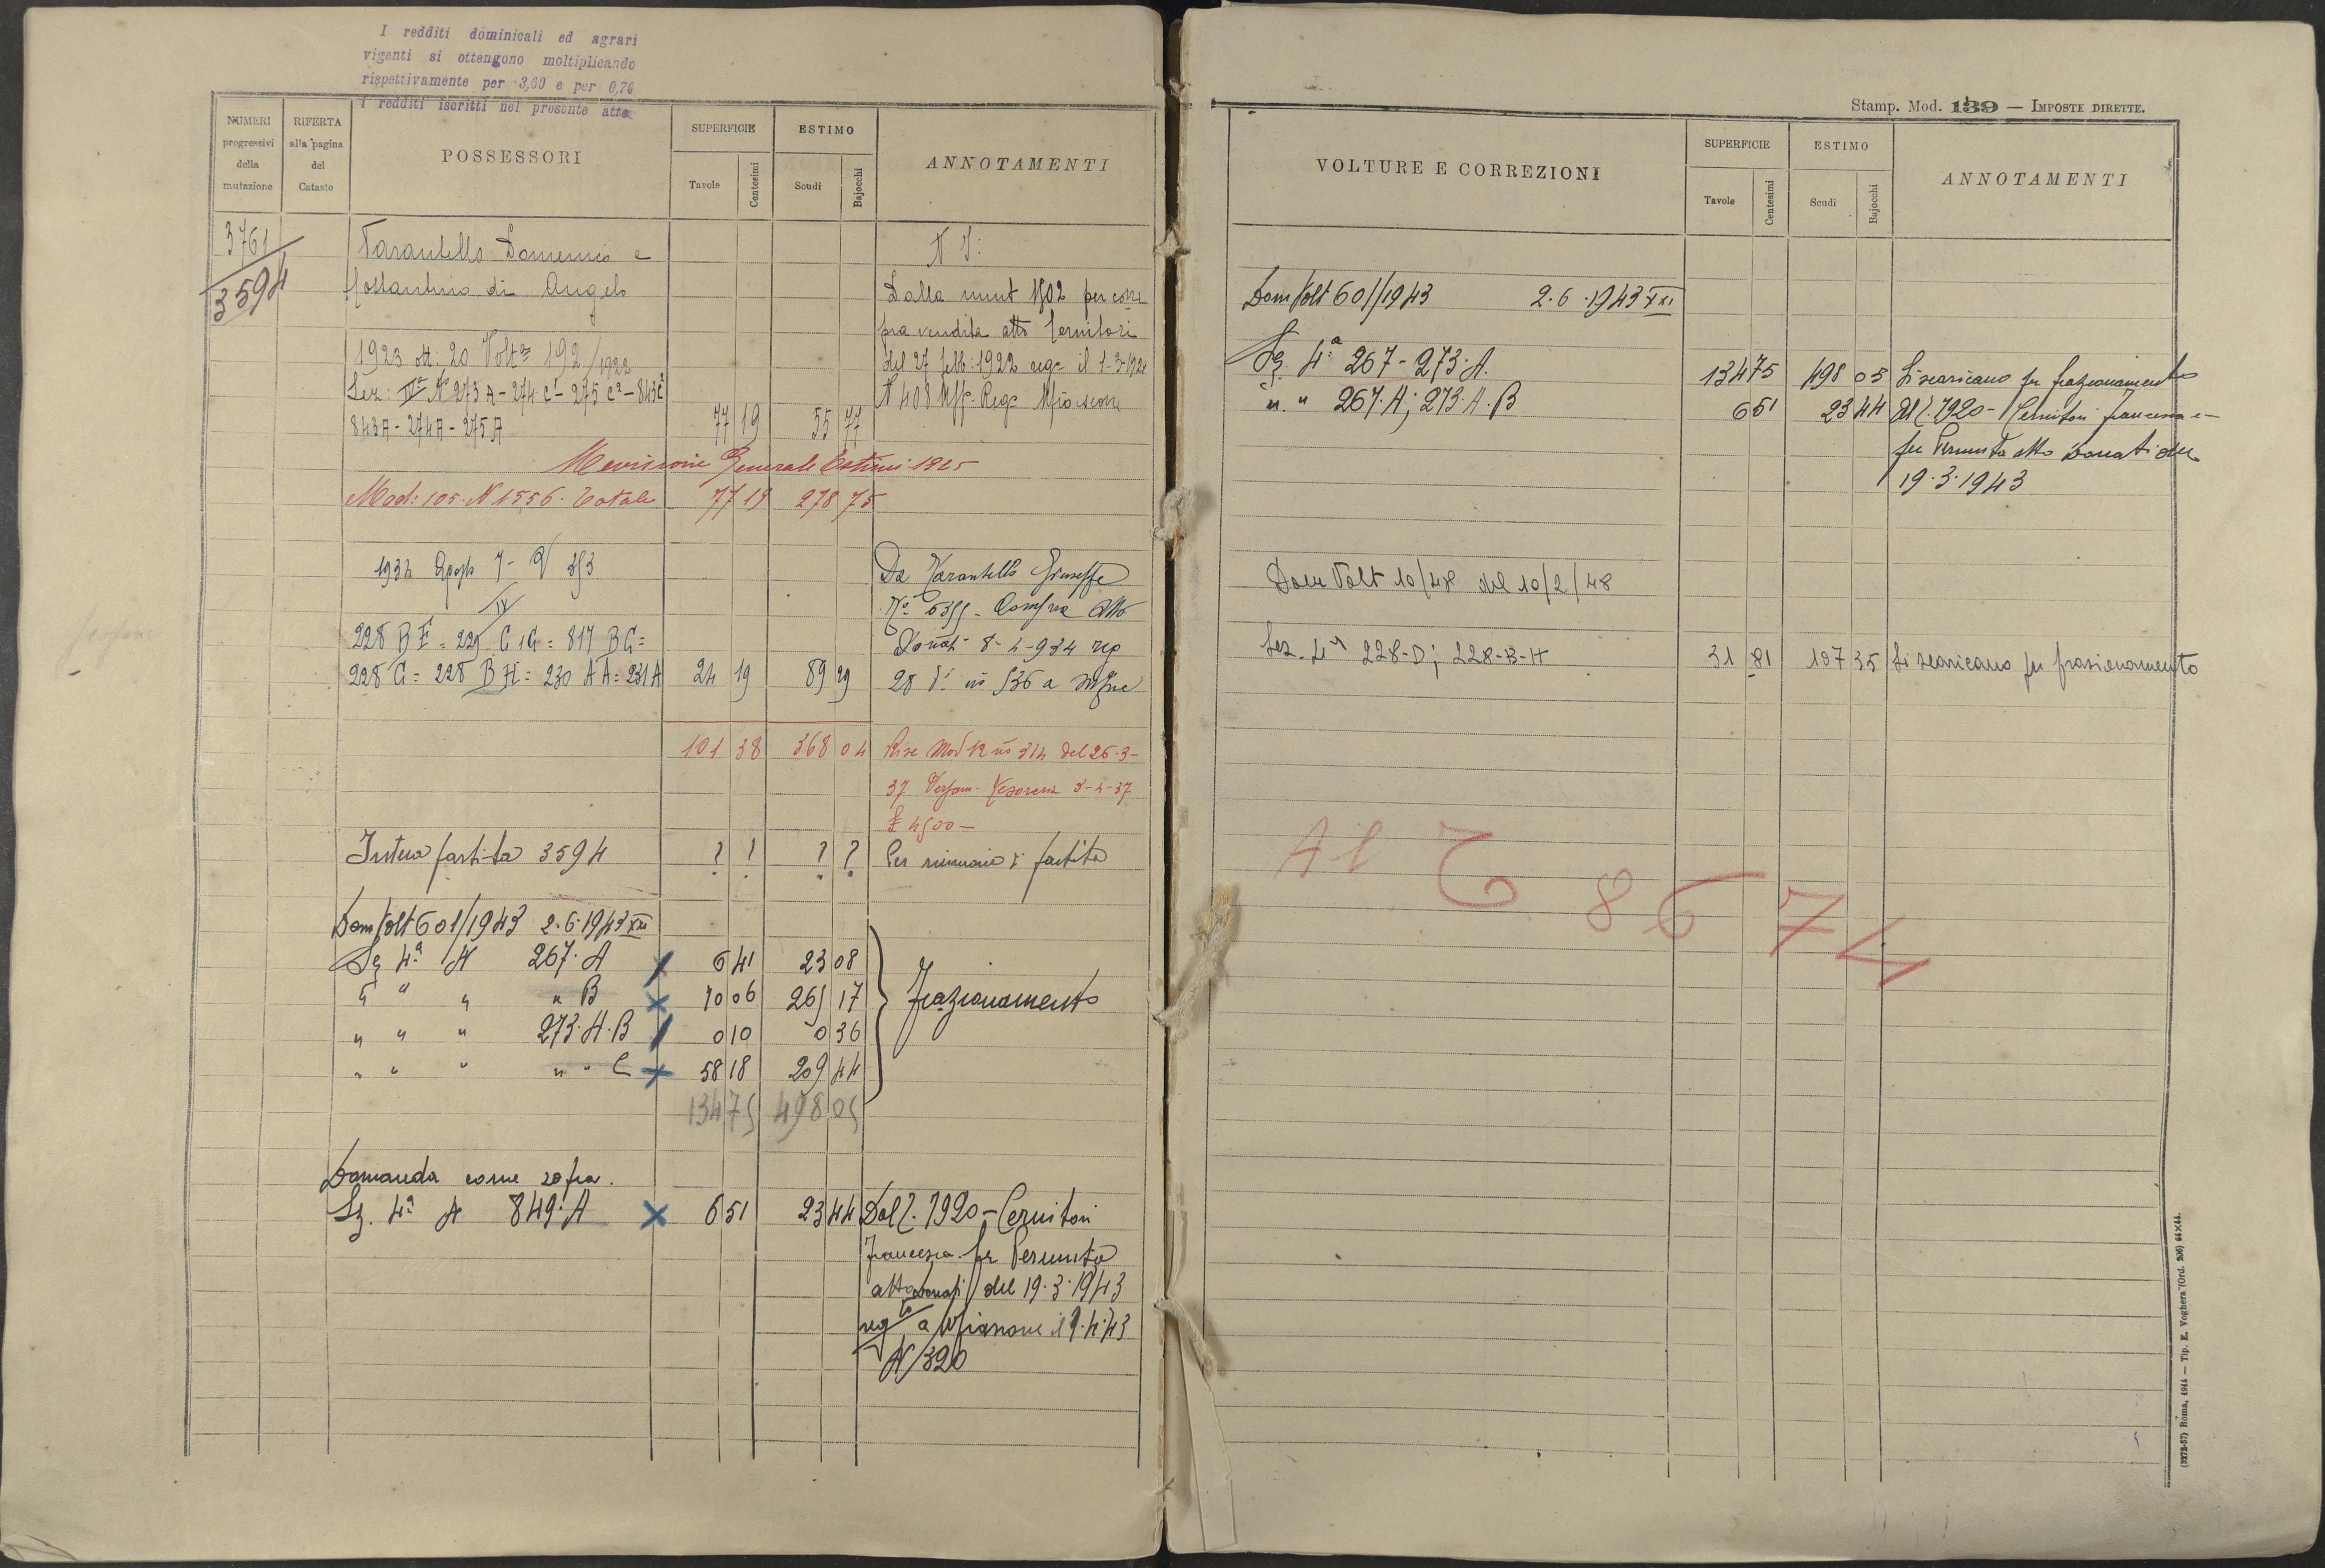 I redditi dominicali ed agrari
vigenti si ottengono moltiplicando
rispettivamente per 3,60 e per 0,70
i redditi iscritti nel presente atto
NUMERI progressivi della mutazione
RIFERTA alla pagina del Catasto
POSSESSORI
SUPERFICIE
Tavole Centesimi
ESTIMO
Scudi Bajocchi
ANNOTAMENTI
3761
3594
Tarantello Domenico e
Costantino di Angelo
1923 ott: 20 Volt 192/1922
Sez: IVa N 273 A - 274 C - 275 C - 843 C
843 A - 274 A - 275 A 77 19 55 77
N
Dalla 1502 per
pra vendita atto Cernitori
del 27 febb: 1922 reg il 1-3-1922
N 408
Revisione Generale Estimi 1925
Mod: 105. N 1556. Totale 77 19 278 75
1934 Agosto 7 - V 353
IV
228 B F = 229 C = 817 B C =
228 G = 228 B H = 230 A A = 231 A 24 19 89 29
Da Tarantello Giuseppe
Compra Atto
Donati 8-4-934 reg
28 no 536 a
101 38 368 04
Mod 12 no 314 del 26-3-
37 Tesoreria 5-4-37
£ 4500 -
Intera partita 3594 ? ? ? ? Per partita
Dom Volt 601/1943 2.6.1943 XXI
Sez 4a N 267. A 6 41 23 08
" " " " B 70 06 265 17
" " " 273. A. B 0 10 0 36
" " " " " C 58 18 209 44
Frazionamento
134 75 498 05
Domanda come sopra.
Sez. 4a N 849. A 6 51 23 44 Dal 7920 - Cernitori
Francesca per Permuta
atto Donati del 19.3.1943
regto a il 9.4.43
N 320
Stamp. Mod. 139 — IMPOSTE DIRETTE.
VOLTURE E CORREZIONI
SUPERFICIE
Tavole Centesimi
ESTIMO
Scudi Bajocchi
ANNOTAMENTI
Dom Volt 601/1943 2.6.1943 XXI
Sez. 4a 267 - 273. A. 134 75 498 05 Si scaricano per frazionamento
" " 267. A; 273. A. B 6 51 23 44 Al 7920 - Cernitori Francesca
per Permuta atto Donati del
19.3.1943
Dom Volt 10/48 del 10/2/48
Sez. 4a 228-D; 228-B-H 31 81 157 35 Si scaricano per frazionamento
Al 8674
(3272-57) Roma, 1914 — Tip. E. Voghera (Ord. 206) 64×44.